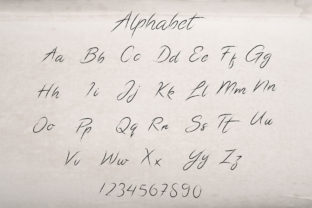 Alphabet
Aa Bb Cc Dd Ee Ff Gg
Hh Ii Jj Kk Ll Mm Nn
Oo Pp Qq Rr Ss Tt Uu
Vv Ww Xx Yy Zz
1234567890